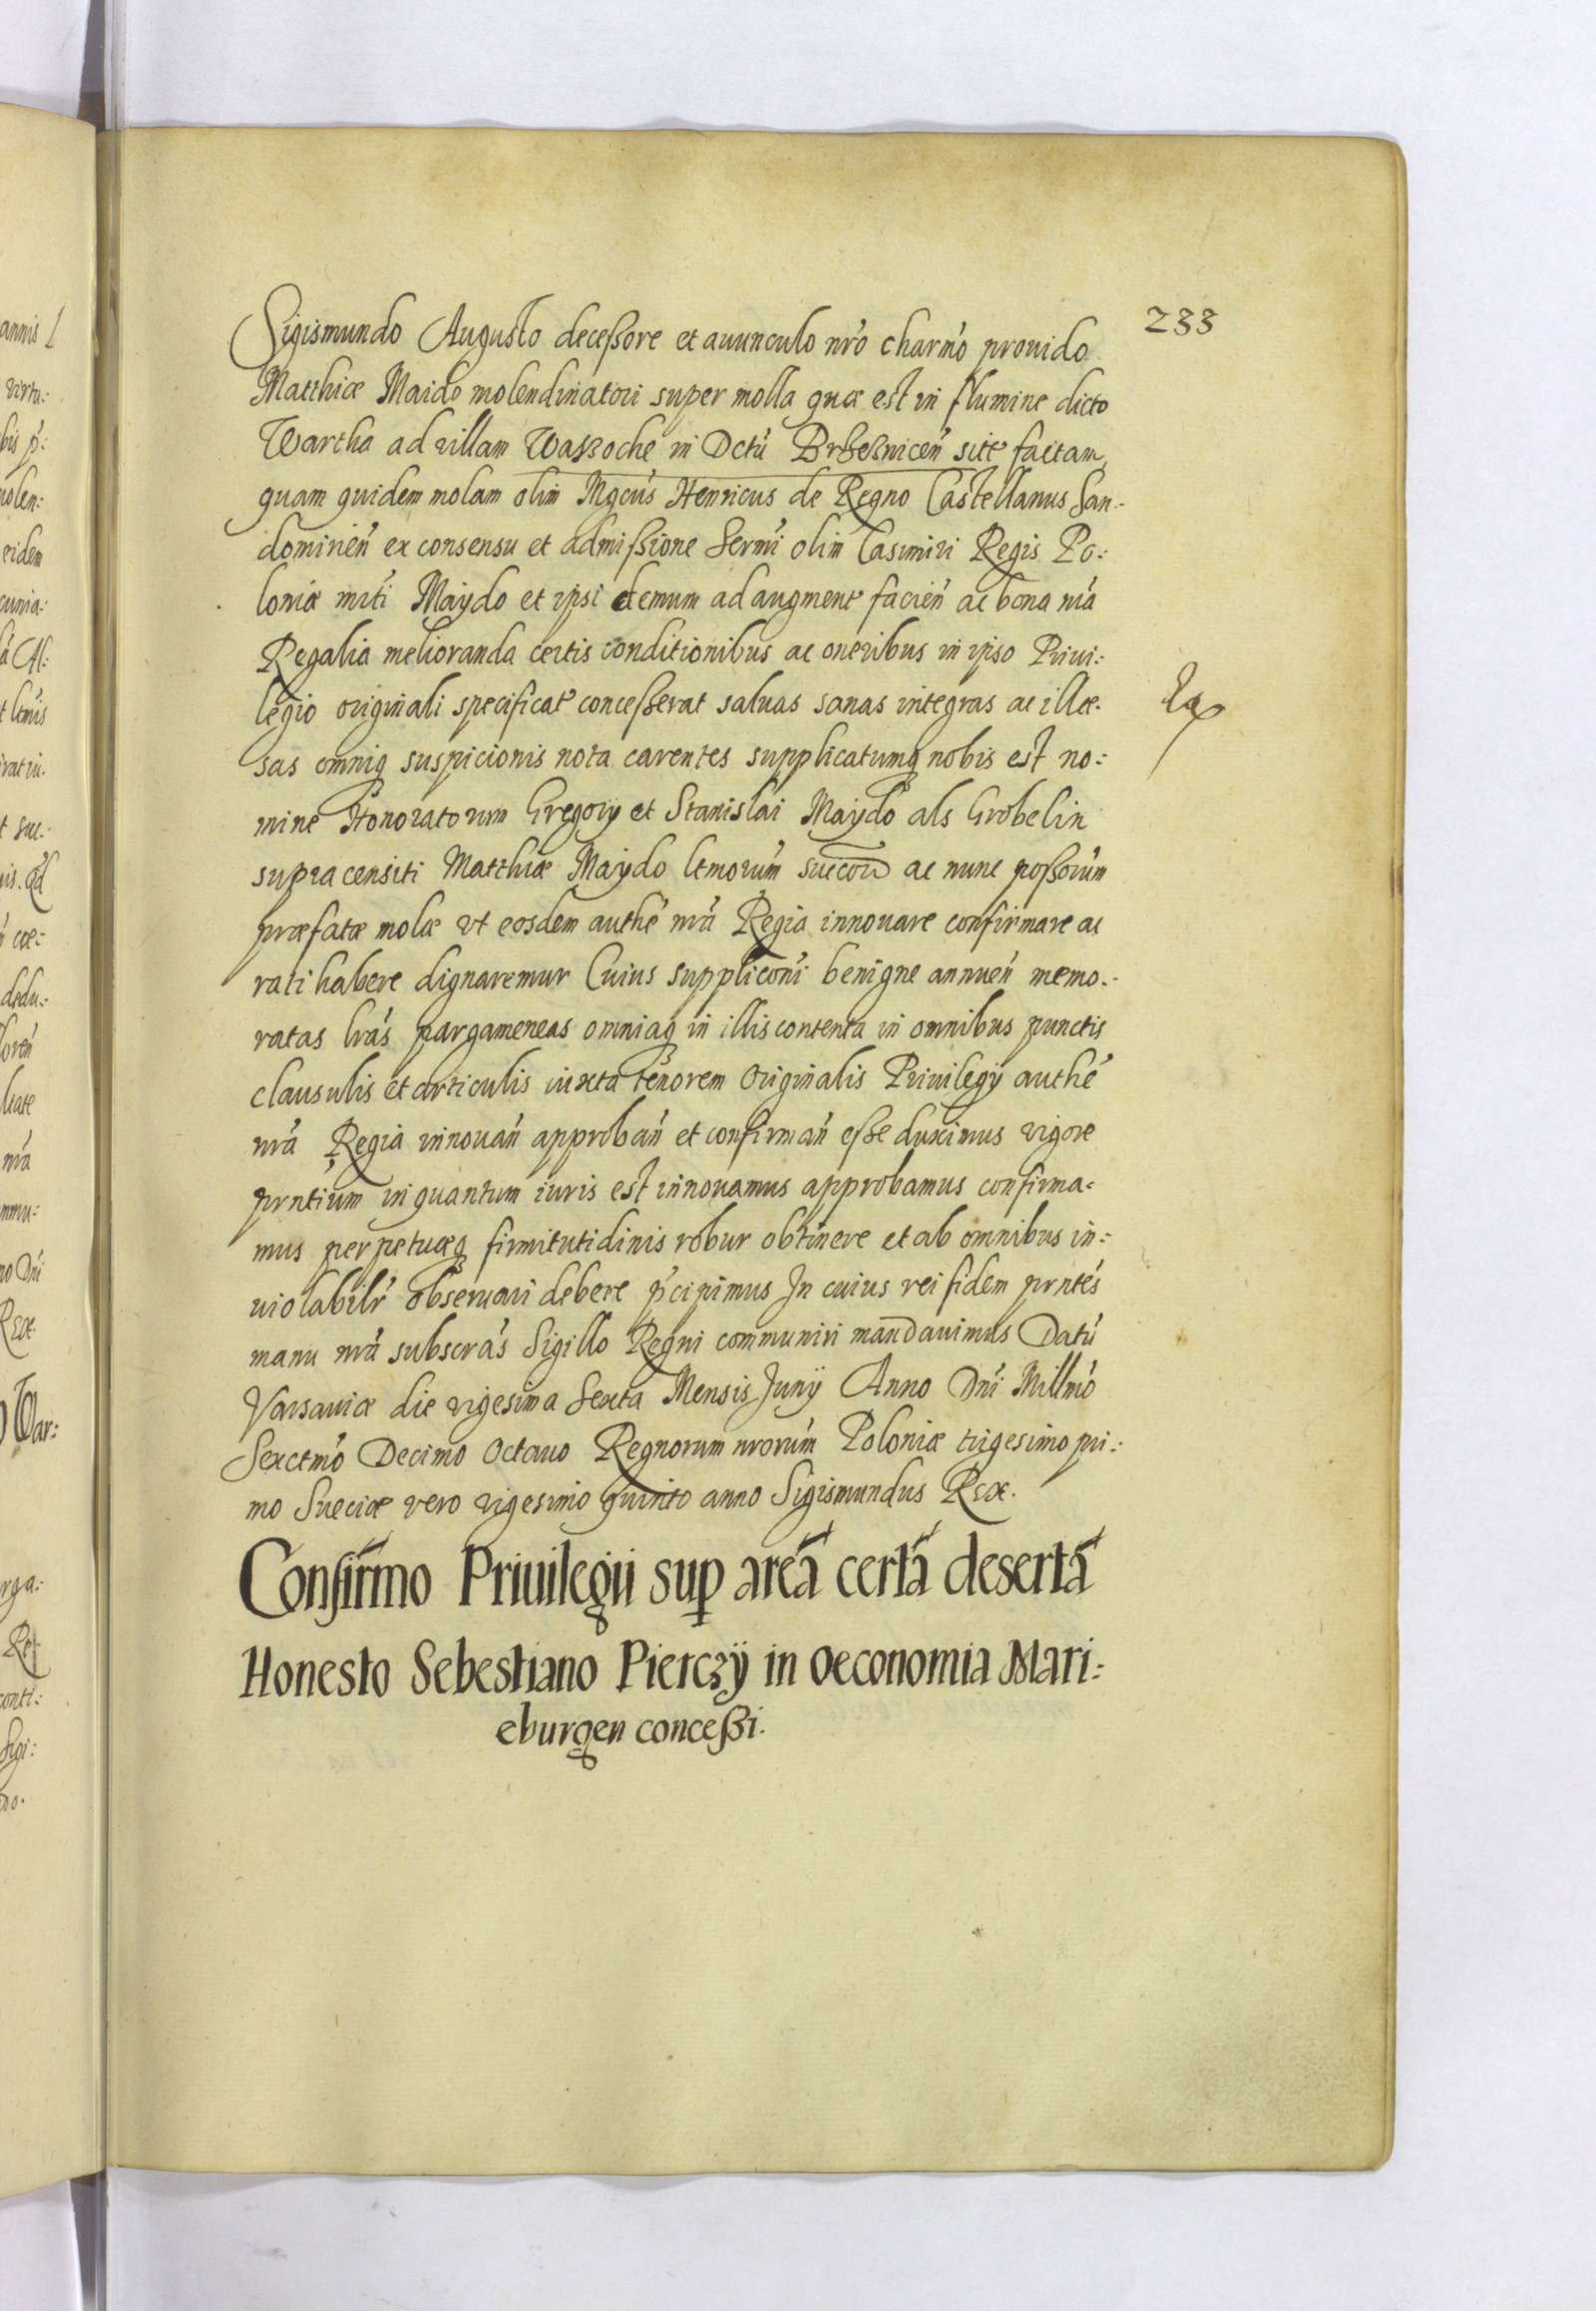 233
Sigismundo Augusto deceßore et auunculo nr̃o charm̃o prouido
Matthiæ Maido molendinatori super molla quæ est in flumine dicto
Wartha ad villam Waszoche in Dctũ Brzezniceñ sitẽ factam,
quam quidem molam olim Mgcũs Henricus de Regno Castellanus San-
domirieñ ex consensu et admißione Serm̃i olim Casimiri Regis Po:
loniæ Maydo et ipsi demum ad augmenẽ facieñ ac bona nr̃a
Regalia melioranda certis conditionibus ac oneribus in ipso Priui:
legio originali specificatẽ conceßerat saluas sanas integras ac illæ-
sas omniq suspicionis nota carentes supplicatumq nobis est no:
mine Honoratorum Gregorij et Stanislai Maydo als Grobelin
supra censiti Matthiæ Maydo ltmorũm ac nunc poßorũm
præfatæ molæ vt eosdem authẽ nr̃a Regia innouare confirmare ac
rati habere dignaremur Cuius suppliconĩ benigne annueñ memo:
ratas lr̃as pargameneas omniaq in illis contenta in omnibus punctis
clausulis et articulis iuxta tenorem Originalis Priuilegij authẽ
nr̃a Regia innouañ approbañ et confirmañ eße duximus vigore
prntiũm in quantum iuris est innouamus approbamus confirma-
mus perpetuæq firmitutidinis robur obtinere et ab omnibus in:
uiolabilr̃ obseruari debere p̃cipimus In cuius rei fidem prntẽs
manu nr̃a subscrãs Sigillo Regni communiri mandauimus Datũ
Varsauiæ die vigesima Sexta Mensis Junÿ Anno Dnĩ Millm̃o
Sexctm̃o Decimo Octauo Regnorum nrorũm Poloniæ trigesimo pri:
mo Sueciæ vero vigesimo quinto anno Sigismundus Rex.
Confirmo Priuilegii sup areã certã desertã
Honesto Sebestiano Pierczÿ in Oeconomia Mari:
eburgen conceßi.